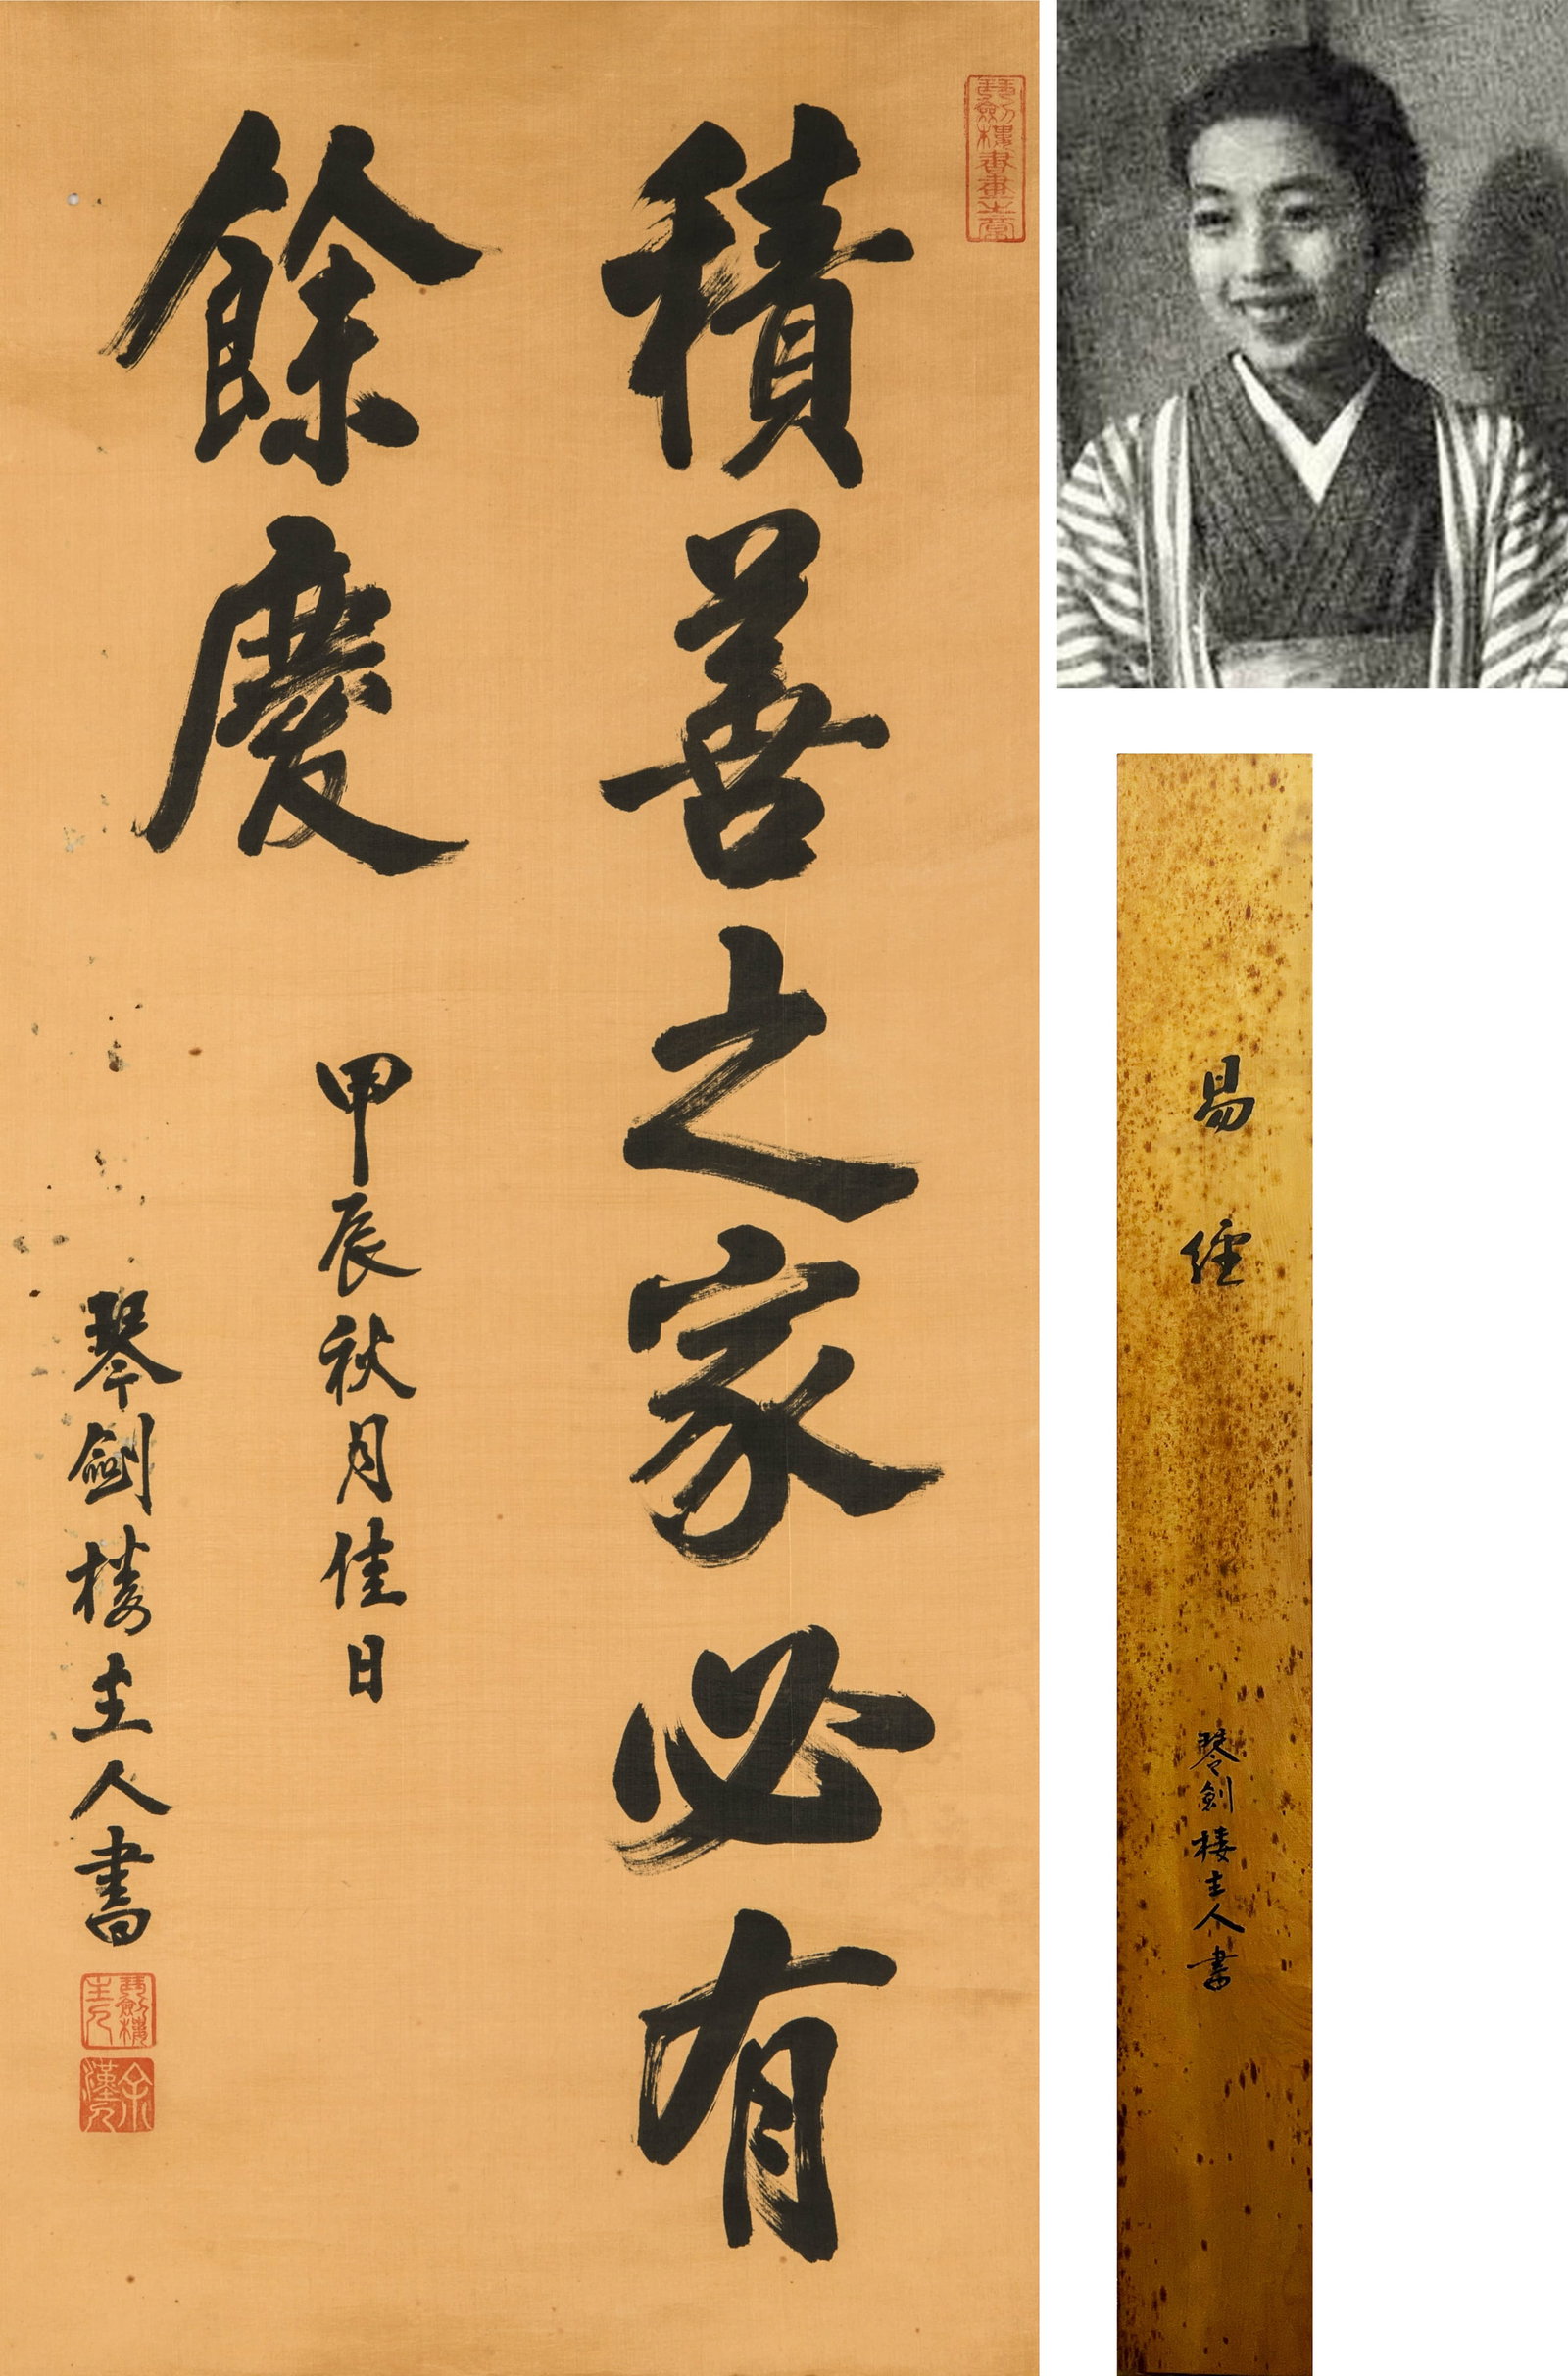 琴劍樓書畫之章
積善之家必有
餘慶
甲辰秋月佳日
琴劍楼主人書
琴劍樓主人
余漢人
易經
琴劍楼主人書